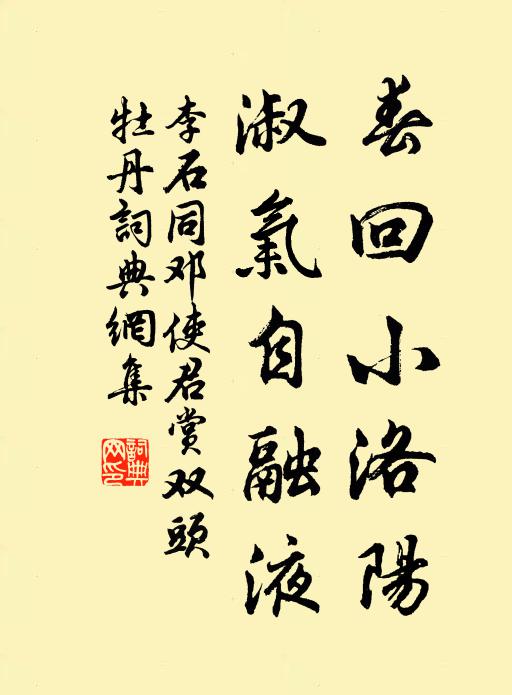 春回小洛陽
淑氣自融液
李石同邓使君賞双頭
牡丹詞典網集
詞典
网印